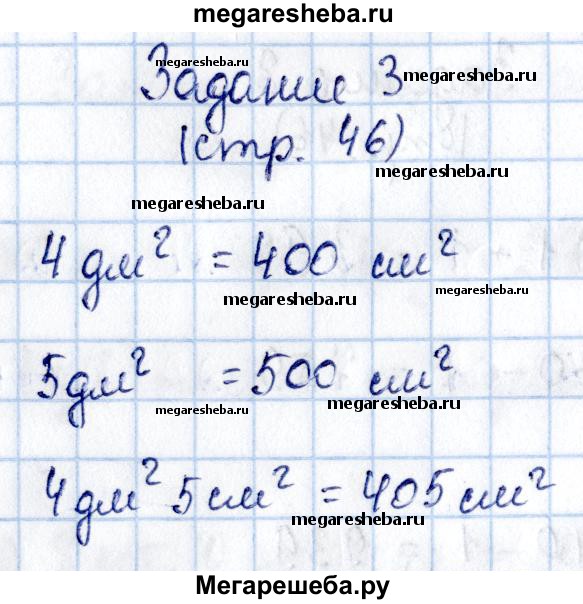 megaresheba.ru
megaresheba.ru
Задание 3 megaresheba.ru
(стр. 46)
megaresheba.ru
megaresheba.ru
4 дм² = 400 см²
megaresheba.ru
megaresheba.ru
5 дм² = 500 см²
megaresheba.ru
megaresheba.ru
4 дм² 5 см² = 405 см²
megaresheba.ru
Мегарешеба.ру